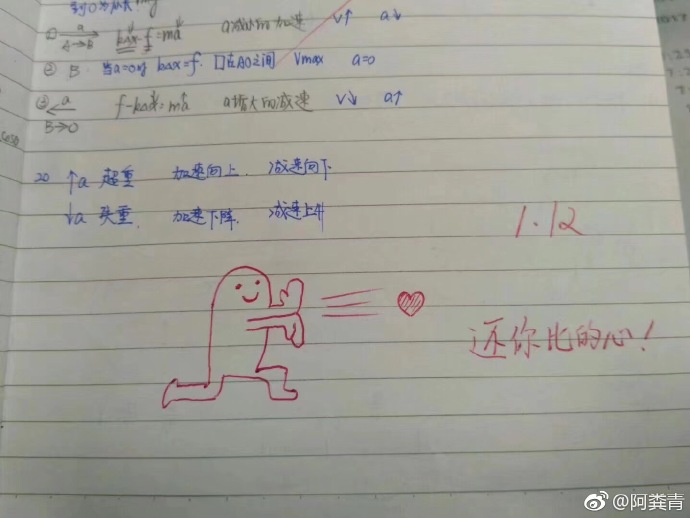 ① a A→B kΔx-f=ma a减小的加速 v↑ a↓
② B 当a=0时 kΔx=f. 口在AO之间 Vmax a=0
③ a B→O f-kΔx=ma a增大的减速 v↓ a↑
20 ↑a 超重 加速向上. 减速向下
↓a 失重. 加速下降. 减速上升
1.12
还你比的心！
@阿粪青